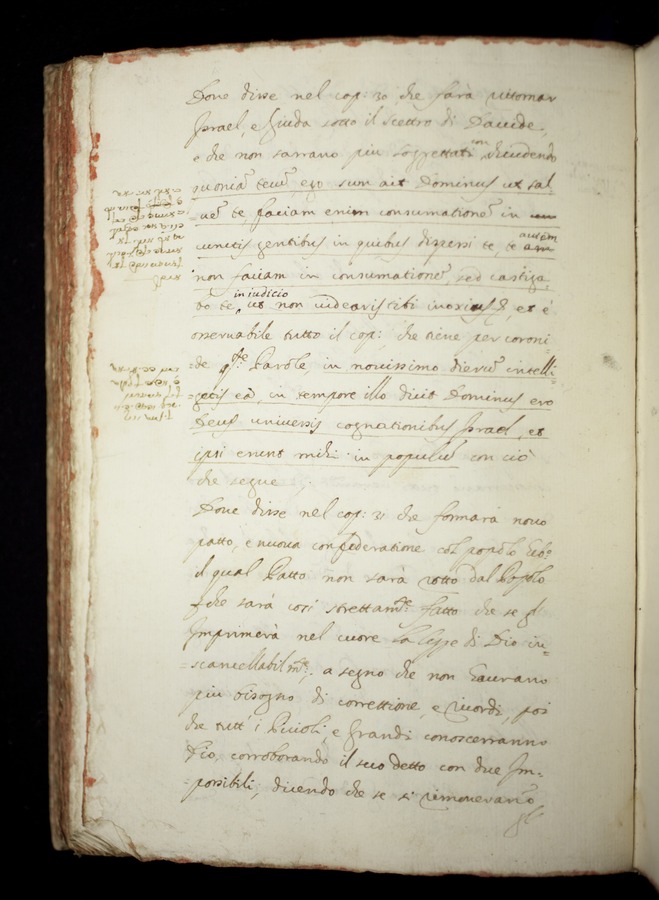 Dove disse nel cap: 30 che farà ritornar
Israel, e Giuda sotto il scettro di Davide,
e che non sarrano piu soggettati con dicendo
quoniā tecū ego sum ait Dominus ut sal-
vē te faciam enim consumationē in
cunctis gentibus in quibus dispersi te, te autem
non faciam in consumationē, sed castiga-
bo te in iudicio, ut non videaris tibi inoxius, et è
osservabile tutto il cap: che tiene per coroni-
de q.ste Parole in novissimo dierū intelli-
getis ea, in tempore illo dicit Dominus ero
Deus universis cognationibus Israel, et
ipsi erunt mihi in populū con ciò
che segue,
Dove disse nel cap: 31 che formarà novo
patto, e nuova confideratione col popolo Eb:o
il qual Patto non sarà rotto dal Popolo
che sarà così strettam.te fatto che se gl
Imprimerà nel cuore la legge di Dio in-
scancellabilm.te, a segno che non haurano
piu bisogno di correttione, e ricordi, poi
che tutt' i Picioli, e Grandi conoscerranno
Dio, corroborando il suo detto con due Im-
possibili, dicendo che se si rimoveranno
gl